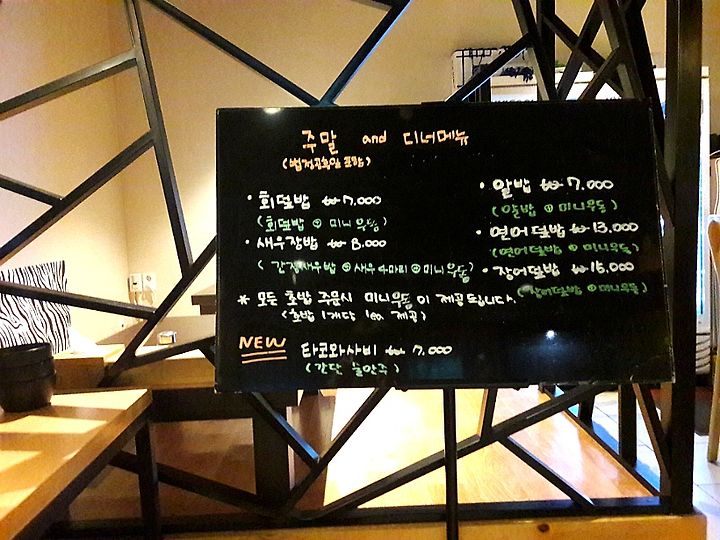 주말 and 디너메뉴
(법정공휴일 포함)
• 회덮밥 ₩ 7.000
(회덮밥 + 미니우동)
• 새우장밥 ₩ 8.000
(간장새우밥 + 새우 4마리 + 미니우동)
• 알밥 ₩ 7.000
(알밥 + 미니우동)
• 연어덮밥 ₩ 13.000
(연어덮밥 + 미니우동)
• 장어덮밥 ₩ 15.000
(장어덮밥 + 미니우동)
* 모든 초밥 주문시 미니우동이 제공됩니다.
(초밥 1개당 1ea 제공)
NEW 타코와사비 ₩ 7.000
(간단 술안주)